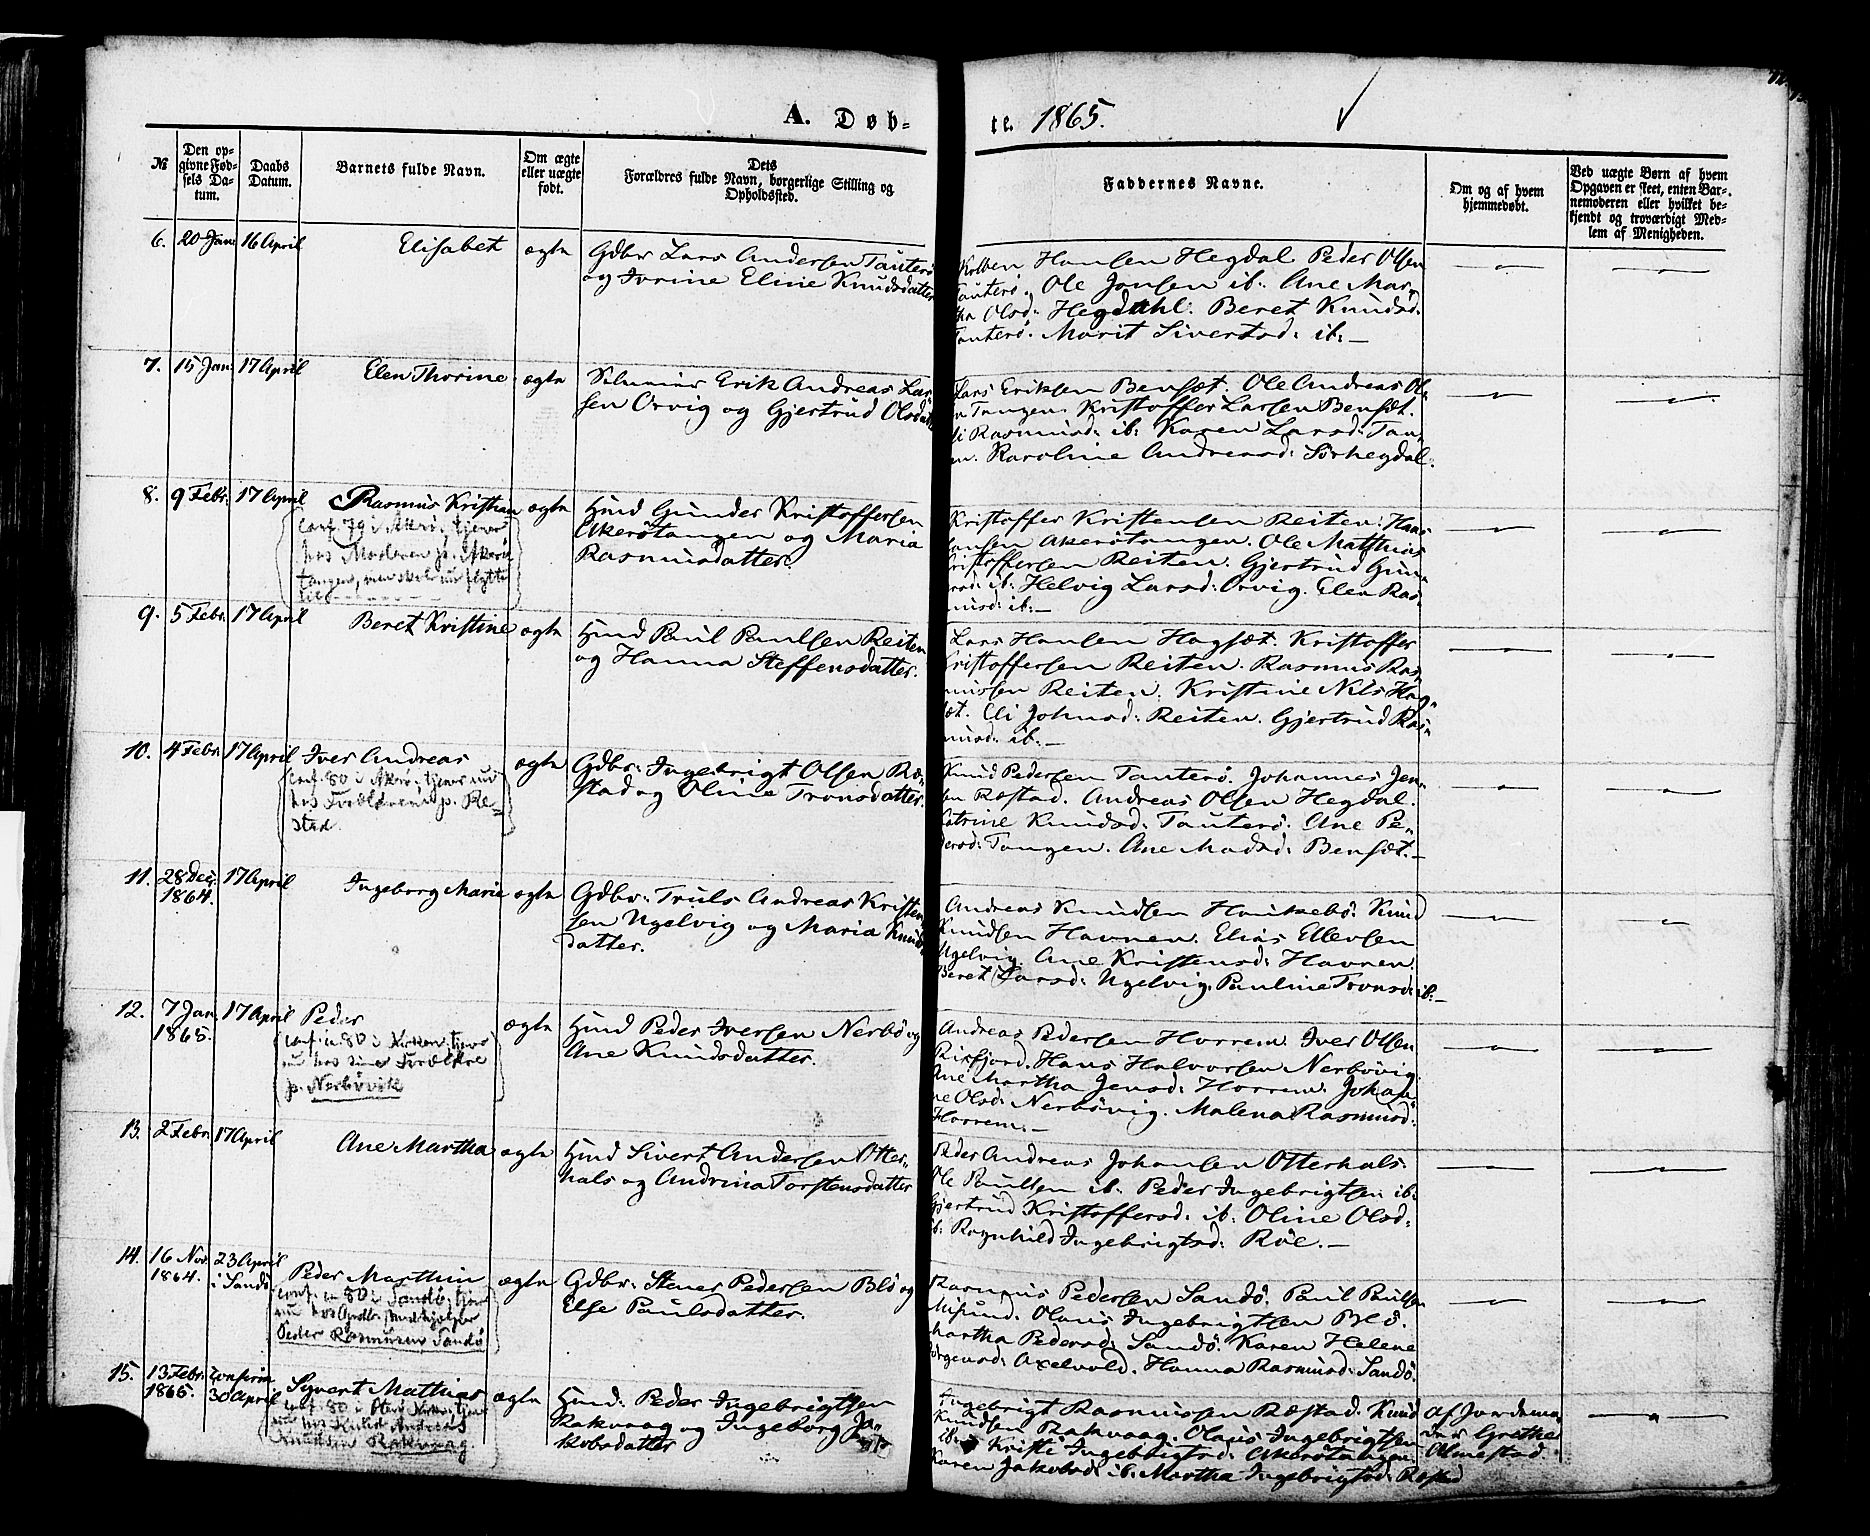 A. Døb-
te. 1865.
№
Den op-
givne Fød-
sels Da-
tum.
Daabs
Datum.
Barnets fulde Navn.
Om ægte
eller uægte
født.
Dets
Forældres fulde Navn, borgerlige Stilling og
Opholdssted.
Faddernes Navne.
Om og af hvem
hjemmedøbt.
Ved uægte Børn af hvem
Opgaven er skeet, enten Bar-
nemoderen eller hvilket be-
kjendt og troværdigt Med-
lem af Menigheden.
6. 20 Jan 16 April Elisabet ægte
Gdbr Lars Andersen Tauterö
og Ivrine Eline Knudsdatter
Hansen Hegdal. Peder Olsen
Tauterö. Ole Jonsen ib: Ane Mar-
tha Olsd: Hegdahl. Beret Knudsd.
Tauterö. Marit Siversd: ib: —
7. 15 Jan 17 April Elen Thorine ægte
Erik Andreas Lar-
sen Orvig og Gjertrud Olsdatter
Lars Eriksen Bensæt. Ole Andreas Ol-
Tangen. Kristoffer Larsen Bensæt.
Rasmusd: ib: Karen Larsd: Tan-
Karoline Andreasd: Sörhegdal.
8. 9 Febr: 17 April Rasmus Kristian ægte
conf. 79 i Akerö, tjener
hos Moderen p. Akerö
tangen, men skal nu flytte
Hmd Gunder Kristoffersen
Akerötangen og Maria
Rasmusdatter.
Kristoffer Kristensen Reiten. Hans
Hansen Akerötangen. Ole Matthias
Kristoffersen Reiten. Gjertrud Gun-
ib: Helvig Larsd: Orvig. Elen Ras-
musd: ib: —
9. 5 Febr. 17 April Beret Kristine ægte
Hmd Paul Paulsen Reiten
og Hanna Steffensdatter.
Lars Hansen Hagsæt. Kristoffer
Kristoffersen Reiten. Rasmus Ras-
mussen Reiten. Kristine Nils Hag-
sæt. Eli Johnsd: Reiten. Gjertrud Ras-
musd: ib: —
10. 4 Febr. 17 April Iver Andreas ægte
conf. 80 i Akerö, tjener nu
hos Forældrene p. Re-
stad.
Gdbr: Ingebrigt Olsen Ræ-
stad og Oline Tronsdatter.
Knud Pedersen Tauterö. Johannes Jen-
sen Ræstad. Andreas Olsen Hegdal.
Katrine Knudsd: Tauterö. Ane Pe-
dersd: Tangen. Ane Madsd: Bensæt. —
11. 28 Dec. 17 April Ingeborg Marie ægte
1864.
Gdbr: Truls Andreas Kristen-
sen Ugelvig og Maria Knuds-
datter.
Andreas Knudsen Hauksebö. Knud
Knudsen Havnen. Elias Ellevsen
Ugelvig. Ane Kristensd: Havnen.
Beret Larsd: Ugelvig. Pauline Tronsd: ib: —
12. 7 Jan. 17 April Peder ægte
1865.
conf. i 80 i Kirken, tjener
nu hos sine Forældre
p. Nerbövik
Hmd Peder Iversen Nerbö og
Ane Knudsdatter.
Andreas Pedersen Horrem. Iver Olsen
Risfjord. Hans Halvorsen Nerbövig.
Ane Martha Jensd: Horrem. Johan-
ne Olsd: Nerbövig. Malena Rasmusd:
Horrem. —
13. 2 Febr. 17 April Ane Martha ægte
Hmd Sivert Andersen Otter-
hals og Andrina Torstensdatter
Peder Andreas Johansen Otterhals
Ole Paulsen ib: Peder Ingebrigtsen ib:
Gjertrud Kristoffersd: ib: Oline Olsd:
ib: Ragnhild Ingebrigtsd: Röe. —
14. 16 Nov. 23 April Peder Marthin ægte
1864. i Sandö
conf. i 80 i Sandö, tjener
nu hos
Peder Rasmusen Sandö
Gdbr: Stener Pedersen Blö og
Else Paulsdatter.
Rasmus Pedersen Sandö. Paul Paulsen
Misund. Olaus Ingebrigtsen Blö.
Martha Pedersd: Sandö. Karen Helene
Jörgensd: Axelvold. Hanna Rasmusd: Sandö.
15. 13 Febr. confirm. Syvert Mathias ægte
1865. 30 April
conf. 80 i
Andreas
Knudsen Rakvaag
Hmd: Peder Ingebrigtsen
Rakvaag og Ingeborg Ja-
kobsdatter
Ingebrigt Rasmussen Ræstad. Knud
Knudsen Rakvaag. Olaus Ingebrigtsen
ib: Kristi Ingebrigtsd: Akerötangen
Karen Jakobsd: ib: Martha Ingebrigtsd: Ræstad
af Jordemo-
der Grethe
Almestad.